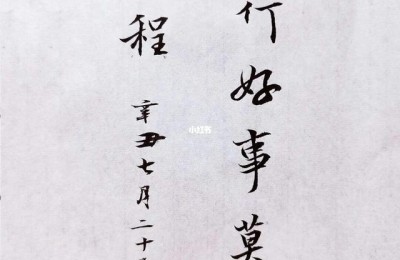 行好事莫
程
辛丑七月二十
小红书